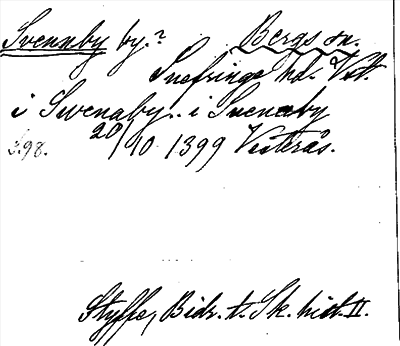 Svennby by.? Bergs sn.
Snefringe hd. Vstt.
i Swenaby.. i Sveneby
S.98. 20/10 1399 Vesterås.
Styffe, Bidr. t. Sk. hist. II.